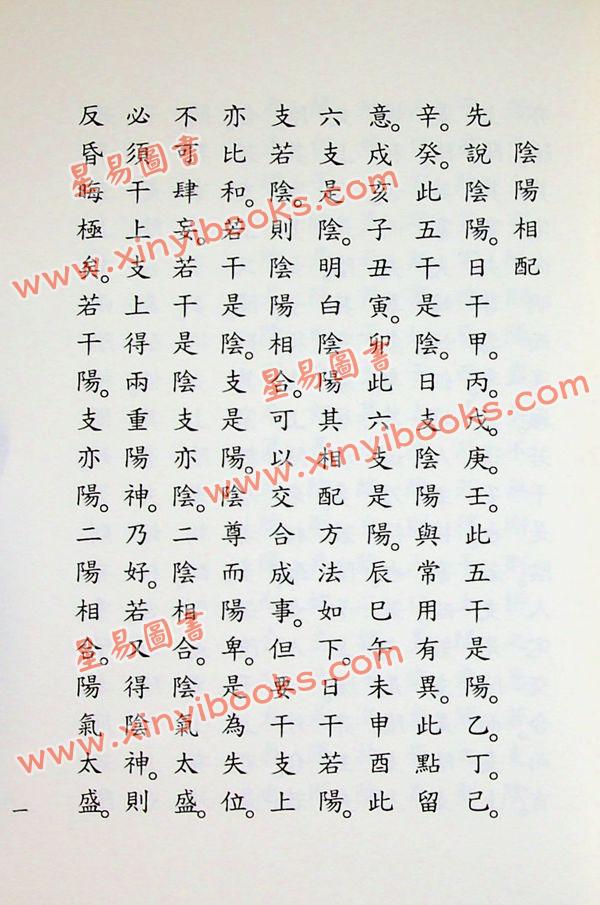 陰陽相配
先說陰陽。日干甲。丙。戊。庚。壬。此五干是陽。乙。丁。己。
辛。癸。此五干是陰。日支陰陽與常用有異。此點留
意。戌亥子丑寅。卯此六支是陽。辰巳午未申酉此
六支是陰。明白陰陽其相配方法如下。日干若陽。
支若陰。則陰陽相合。可以交合成事。但要干支上
亦比和。若干是陰。支是陽。陰尊而陽卑。是為失位。
不可肆妄。若干是陰支亦陰。二陰相合。陰氣太盛。
必須干上支上得兩重陽神。乃好。若又得陰神。則
反昏晦極矣。若干陽。支亦陽。二陽相合。陽氣太盛。
一
星易圖書
www.xinyibooks.com
星易圖書
www.xinyibooks.com
星易圖書
www.xinyibooks.com